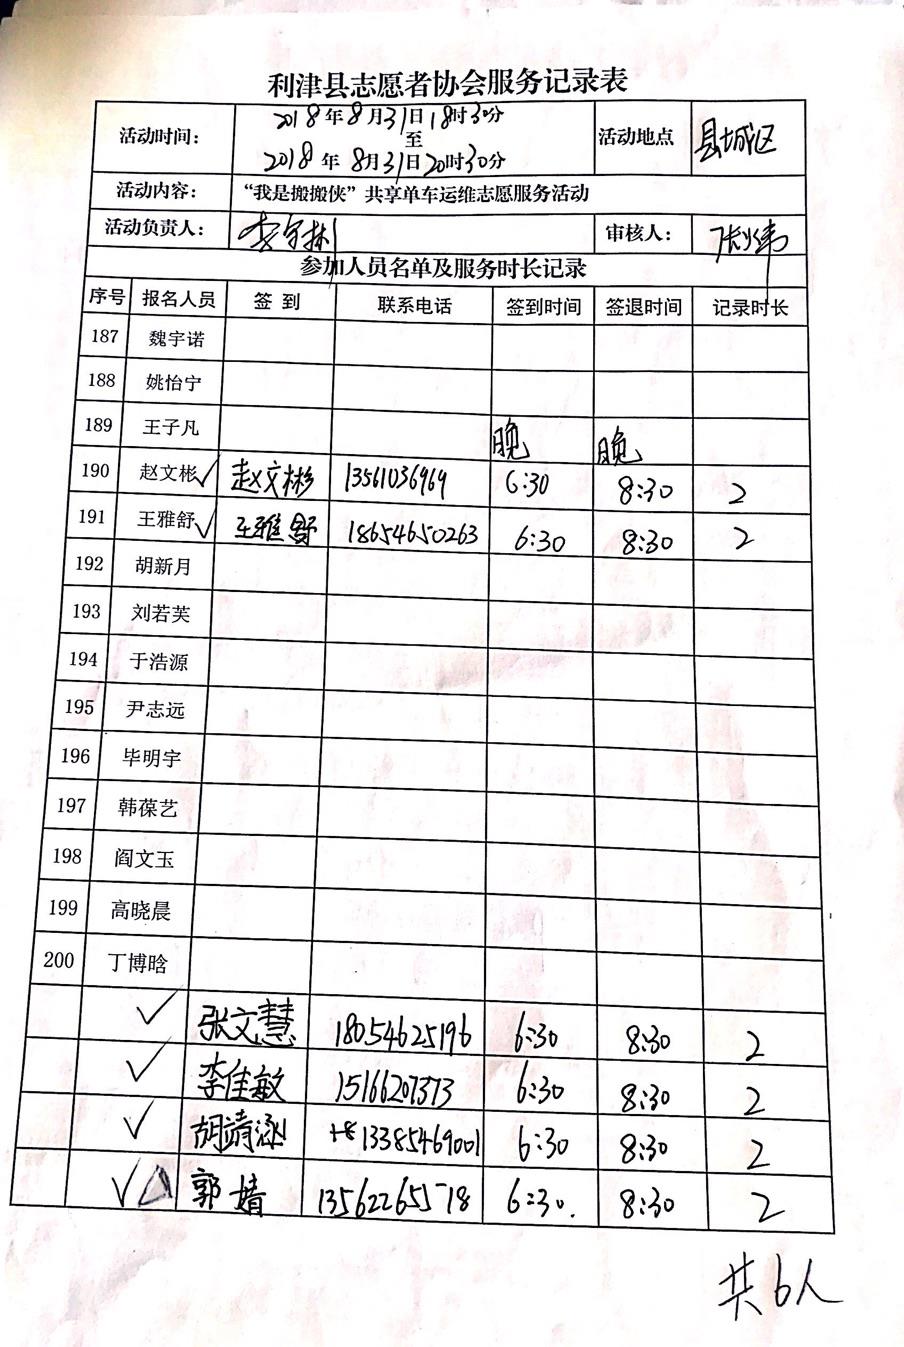 利津县志愿者协会服务记录表
活动时间： 2018年8月31日18时30分 至 2018年8月31日20时30分 活动地点 县城区
活动内容： “我是搬搬侠”共享单车运维志愿服务活动
活动负责人： 李守林 审核人： 张炜
参加人员名单及服务时长记录
序号 报名人员 签到 联系电话 签到时间 签退时间 记录时长
187 魏宇诺
188 姚怡宁
189 王子凡
晚 晚
190 赵文彬 ✓ 赵文彬 13561036969 6:30 8:30 2
191 王雅舒 ✓ 王雅舒 18654650263 6:30 8:30 2
192 胡新月
193 刘若芙
194 于浩源
195 尹志远
196 毕明宇
197 韩葆艺
198 阎文玉
199 高晓晨
200 丁博晗
✓ 张文慧 18054625196 6:30 8:30 2
✓ 李佳敏 15166207373 6:30 8:30 2
✓ 胡靖 13385469001 6:30 8:30 2
✓ 郭婧 13562265518 6:30. 8:30 2
共6人